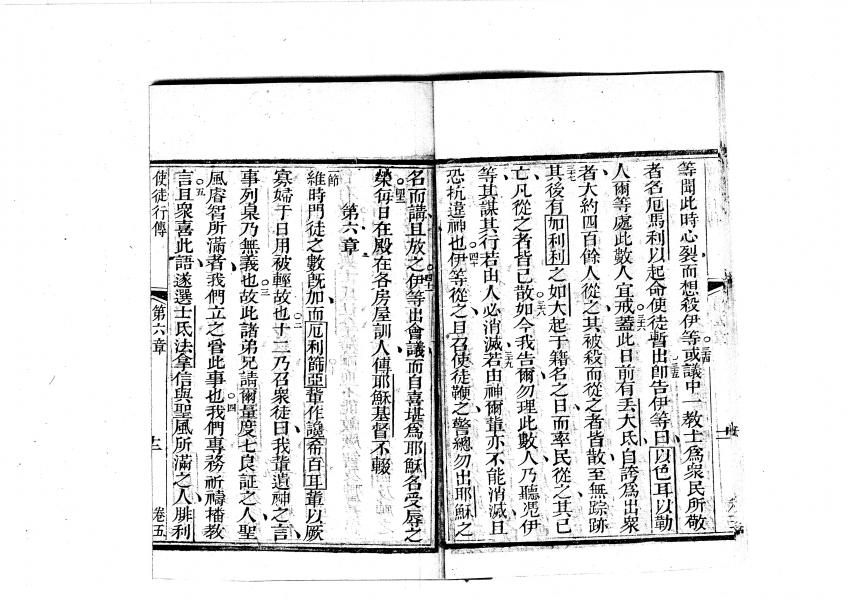 等聞此時心裂而想殺伊等或議中一教士為衆民所敬
者名厄馬利以起命使徒暫出即告伊等曰以色耳以勒
人爾等處此數人宜戒蓋此日前有丟大氐自誇為出衆
者大約四百餘人從之其被殺而從之者皆散至無踪跡
其後有加利利之如大起于籍名之日而率民從之其已
亡凡從之者皆已散如今我告爾勿理此數人乃聽憑伊
等其謀其行若由人必消滅若由神爾輩亦不能消滅且
恐抗違神也伊等從之且召使徒鞭之警總勿出耶穌之
名而講且放之伊等出會議而自喜堪為耶穌名受辱之
榮每日在殿在各房屋訓人傳耶穌基督不輟
第六章
節
維時門徒之數既加而厄利篩亞輩作讒希百耳輩以厥
寡婦于日用被輕故也十二乃召衆徒曰我輩遺神之言
事列桌乃無義也故此諸弟兄請爾量度七良証之人聖
風睿智所滿者我們立之管此事也我們專務祈禱播教
言且衆喜此語遂選士氐法拿信與聖風所滿之人腓利
使徒行傳 第六章 十二 卷五